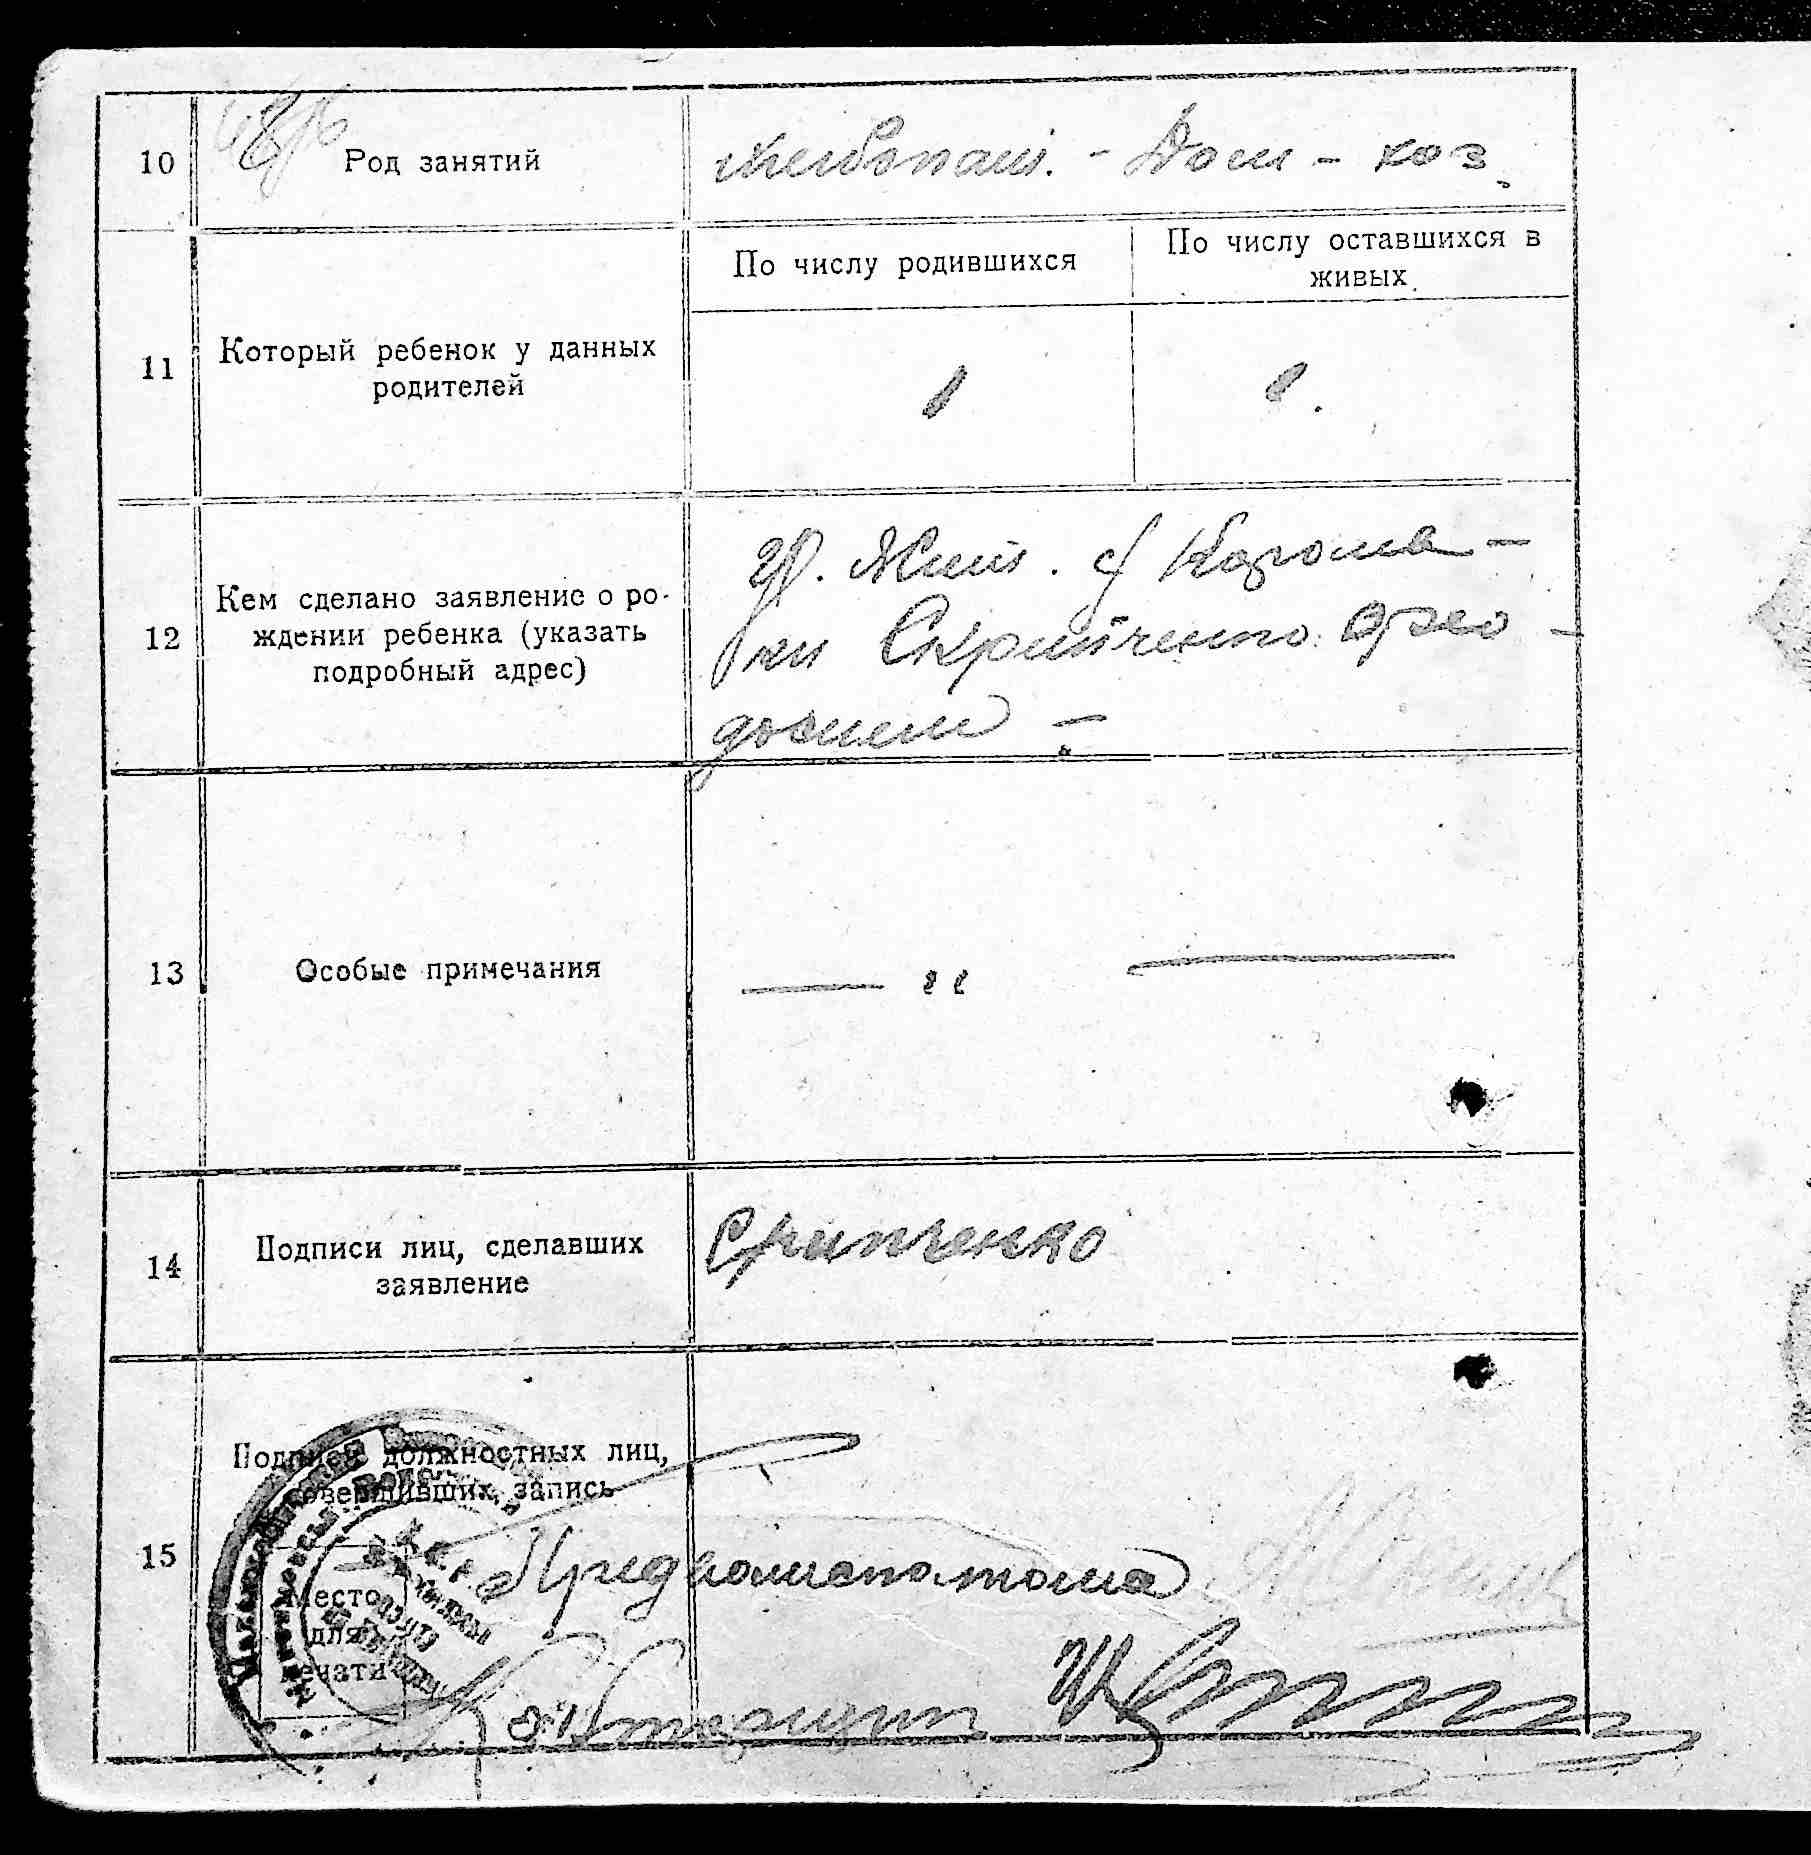 10 Род занятий хлебопаш. - Дом - хоз.
По числу родившихся
По числу оставшихся в
живых.
11 Который ребенок у данных
родителей
1 1.
12 Кем сделано заявление о ро-
ждении ребенка (указать
подробный адрес)
гр. Жит.
ки Скрипченко Фео-
досием -
13 Особые примечания — " —
14 Подписи лиц, сделавших
заявление
Скрипченко
15 Подписи должностных лиц,
совершивших запись
Место
для
печати